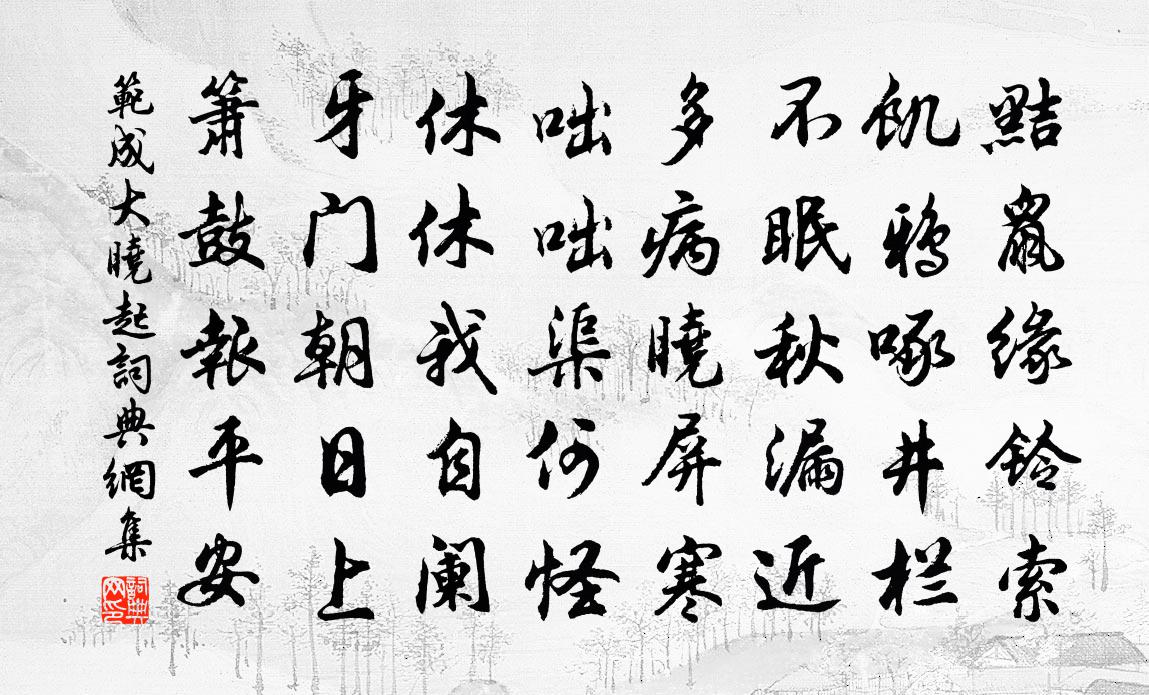 黠鼠缘铃索
饥鸦啄井栏
不眠秋漏近
多病晓屏寒
咄咄渠何怪
休休我自阑
牙门朝日上
箫鼓报平安
範成大曉起詞典網集
詞典